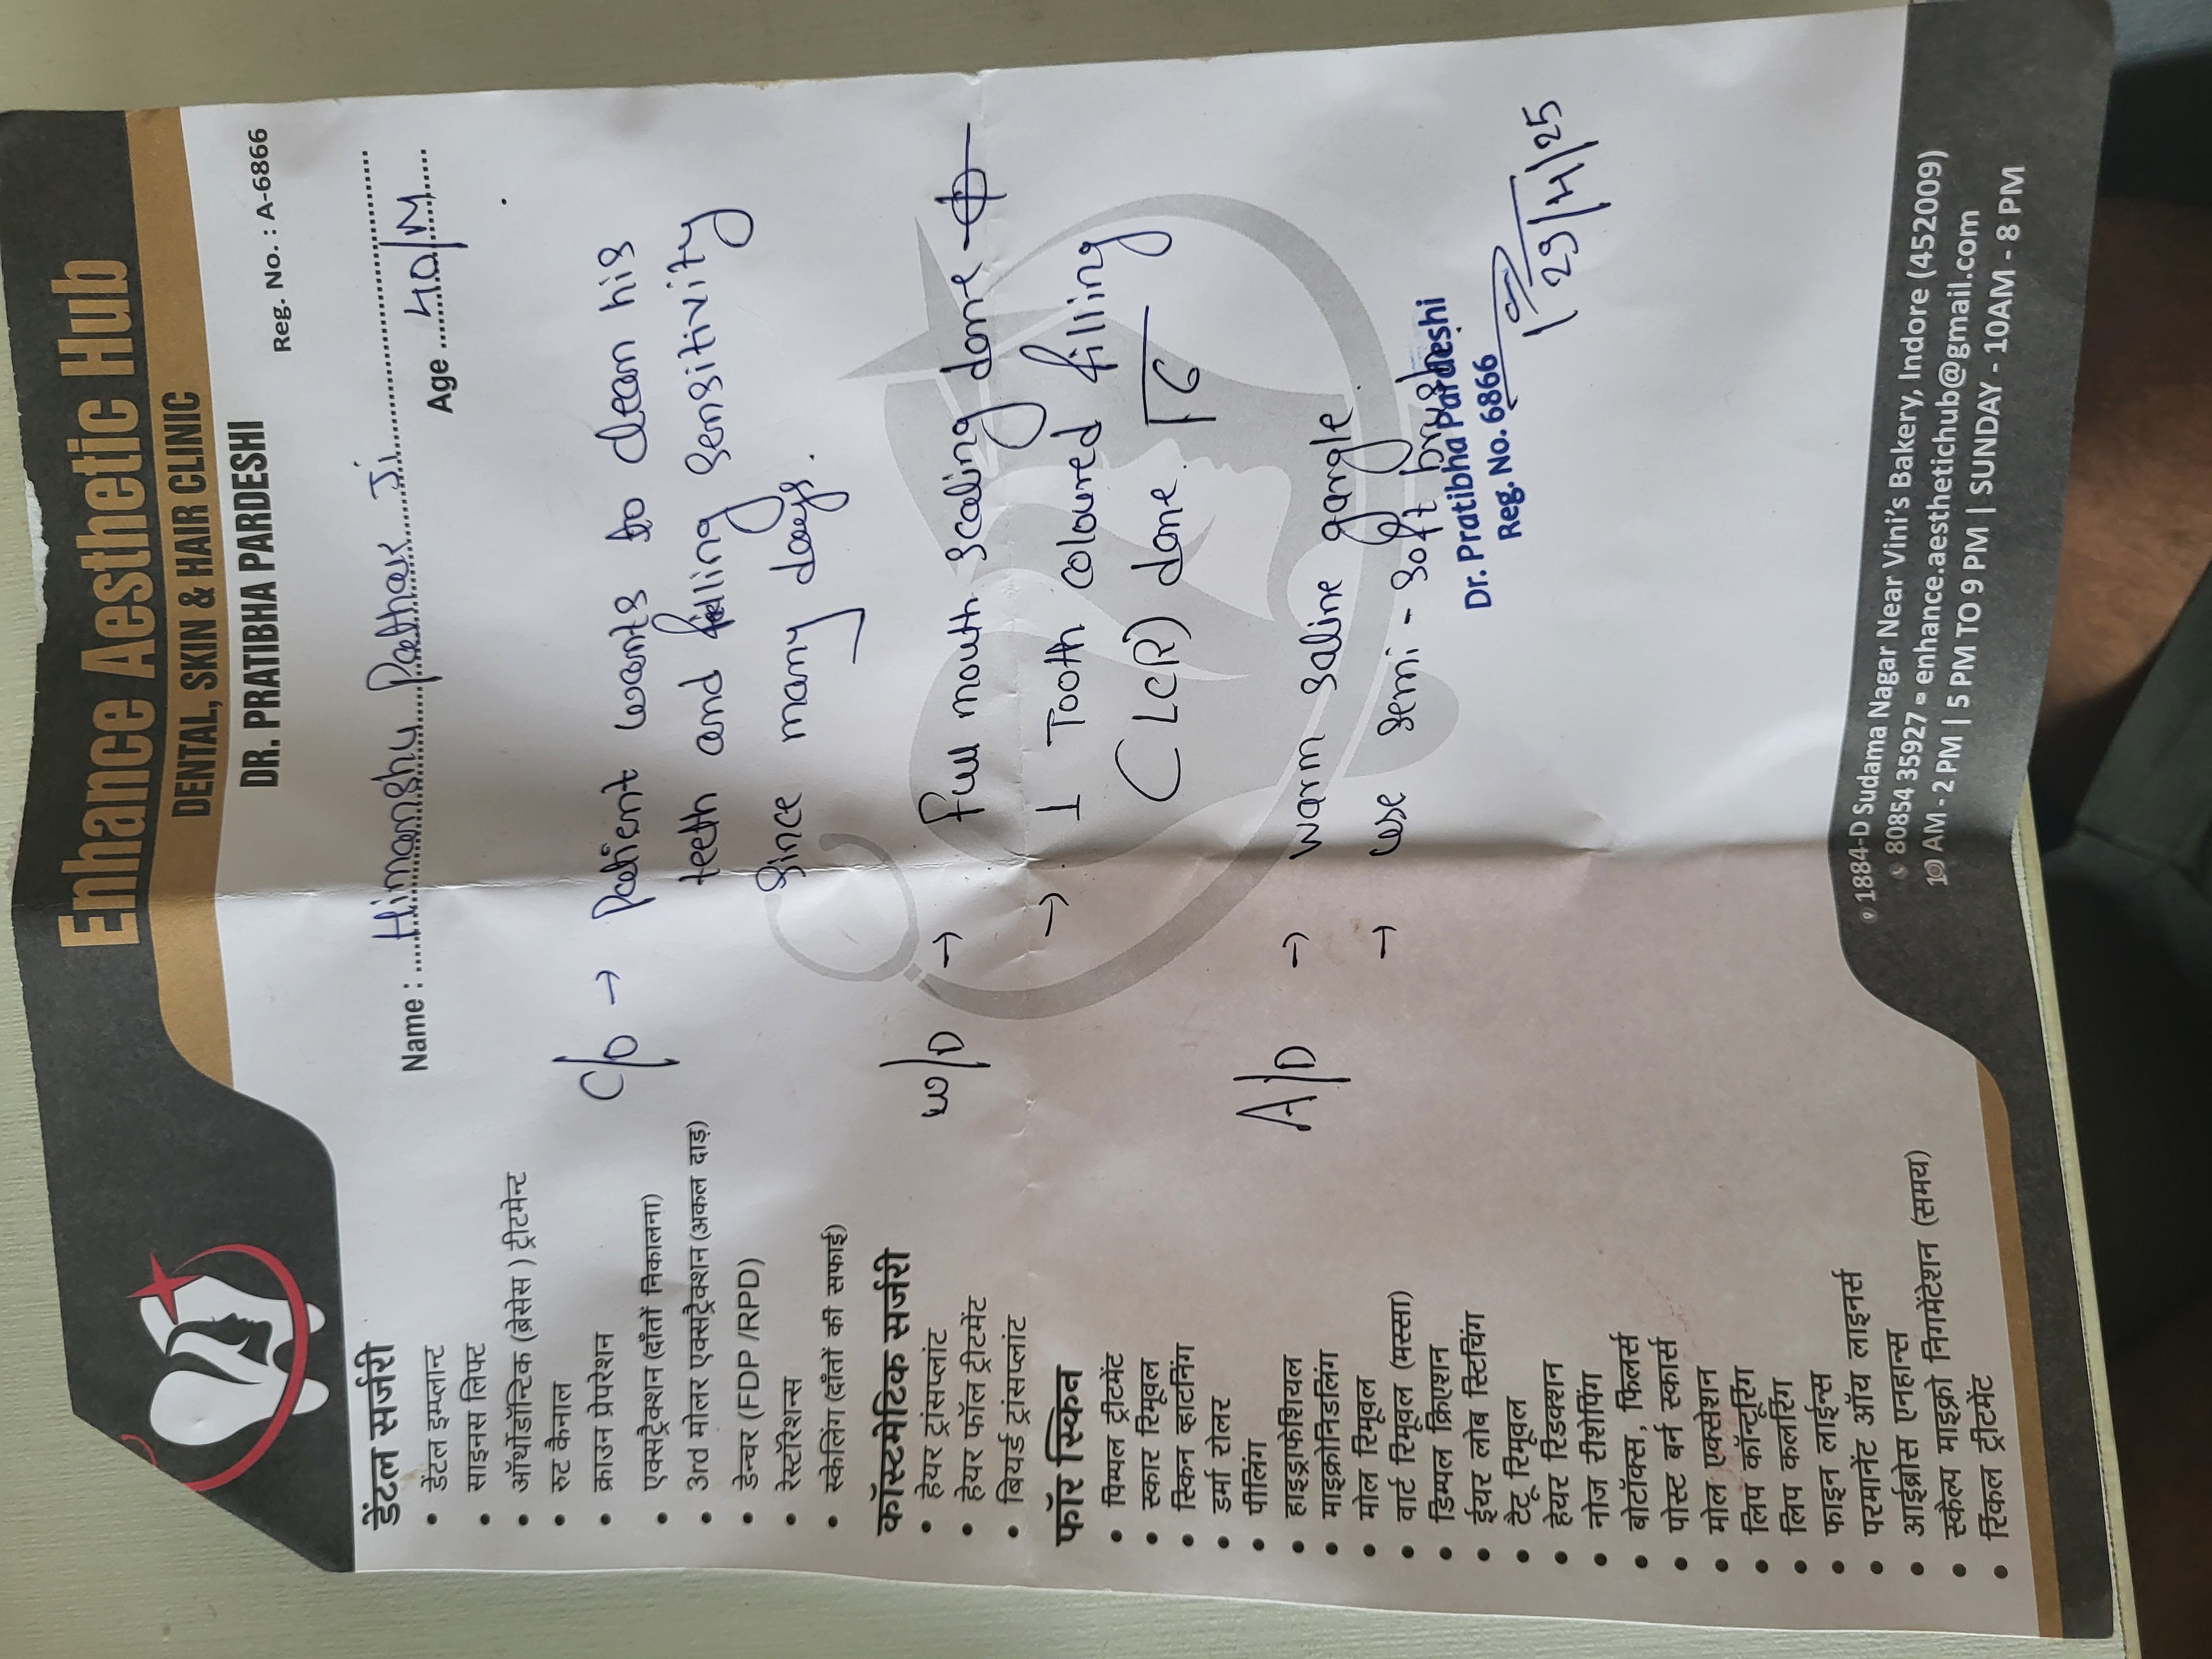 Enhance Aesthetic Hub
DENTAL, SKIN & HAIR CLINIC
DR. PRATIBHA PARDESHI
Reg. No. : A-6866
Name : Himanshu Pathak Ji
Age 40/M
डेंटल सर्जरी
• डेंटल इम्प्लान्ट
• साइनस लिफ्ट
• ऑर्थोडॉन्टिक (ब्रेसेस ) ट्रीटमेन्ट
• रुट कैनाल
• क्राउन प्रेपरेशन
• एक्सट्रैक्शन (दाँतों निकालना)
• 3rd मोलर एक्सट्रैक्शन (अकल दाड़)
• डेन्चर (FDP /RPD)
• रेस्टॉरेशन्स
• स्केलिंग (दाँतों की सफाई)
कॉस्टमेटिक सर्जरी
• हेयर ट्रांसप्लांट
• हेयर फॉल ट्रीटमेंट
• बियर्ड ट्रांसप्लांट
फॉर स्किन
• पिम्पल ट्रीटमेंट
• स्कार रिमूवल
• स्किन व्हाटनिंग
• डर्मा रोलर
• पीलिंग
• हाइड्राफेशियल
• माइक्रोनिडलिंग
• मोल रिमूवल
• वार्ट रिमूवल (मस्सा)
• डिम्पल क्रिएशन
• ईयर लोब स्टिचिंग
• टैटू रिमूवल
• हेयर रिडक्शन
• नोज रीशेपिंग
• बोटॉक्स, फिलर्स
• पोस्ट बर्न स्कार्स
• मोल एक्सेशन
• लिप कॉन्टूरिंग
• लिप कलरिंग
• फाइन लाईन्स
• परमानेंट ऑय लाइनर्स
• आईब्रोस एनहान्स
• स्कैल्प माइक्रो निगमेंटेशन (समय)
• रिंकल ट्रीटमेंट
C/O → Patient wants to clean his
teeth and filling sensitivity
since many days.
W/D → Full mouth scaling done
→ 1 Tooth coloured filling
(LCR) done. 6
A/D → warm saline gargle.
→ use semi-soft brush.
Dr. Pratibha Pardeshi
Reg. No. 6866
29/4/25
1884-D Sudama Nagar Near Vini's Bakery, Indore (452009)
80854 35927 enhance.aesthetichub@gmail.com
10 AM - 2 PM | 5 PM TO 9 PM | SUNDAY - 10AM - 8 PM